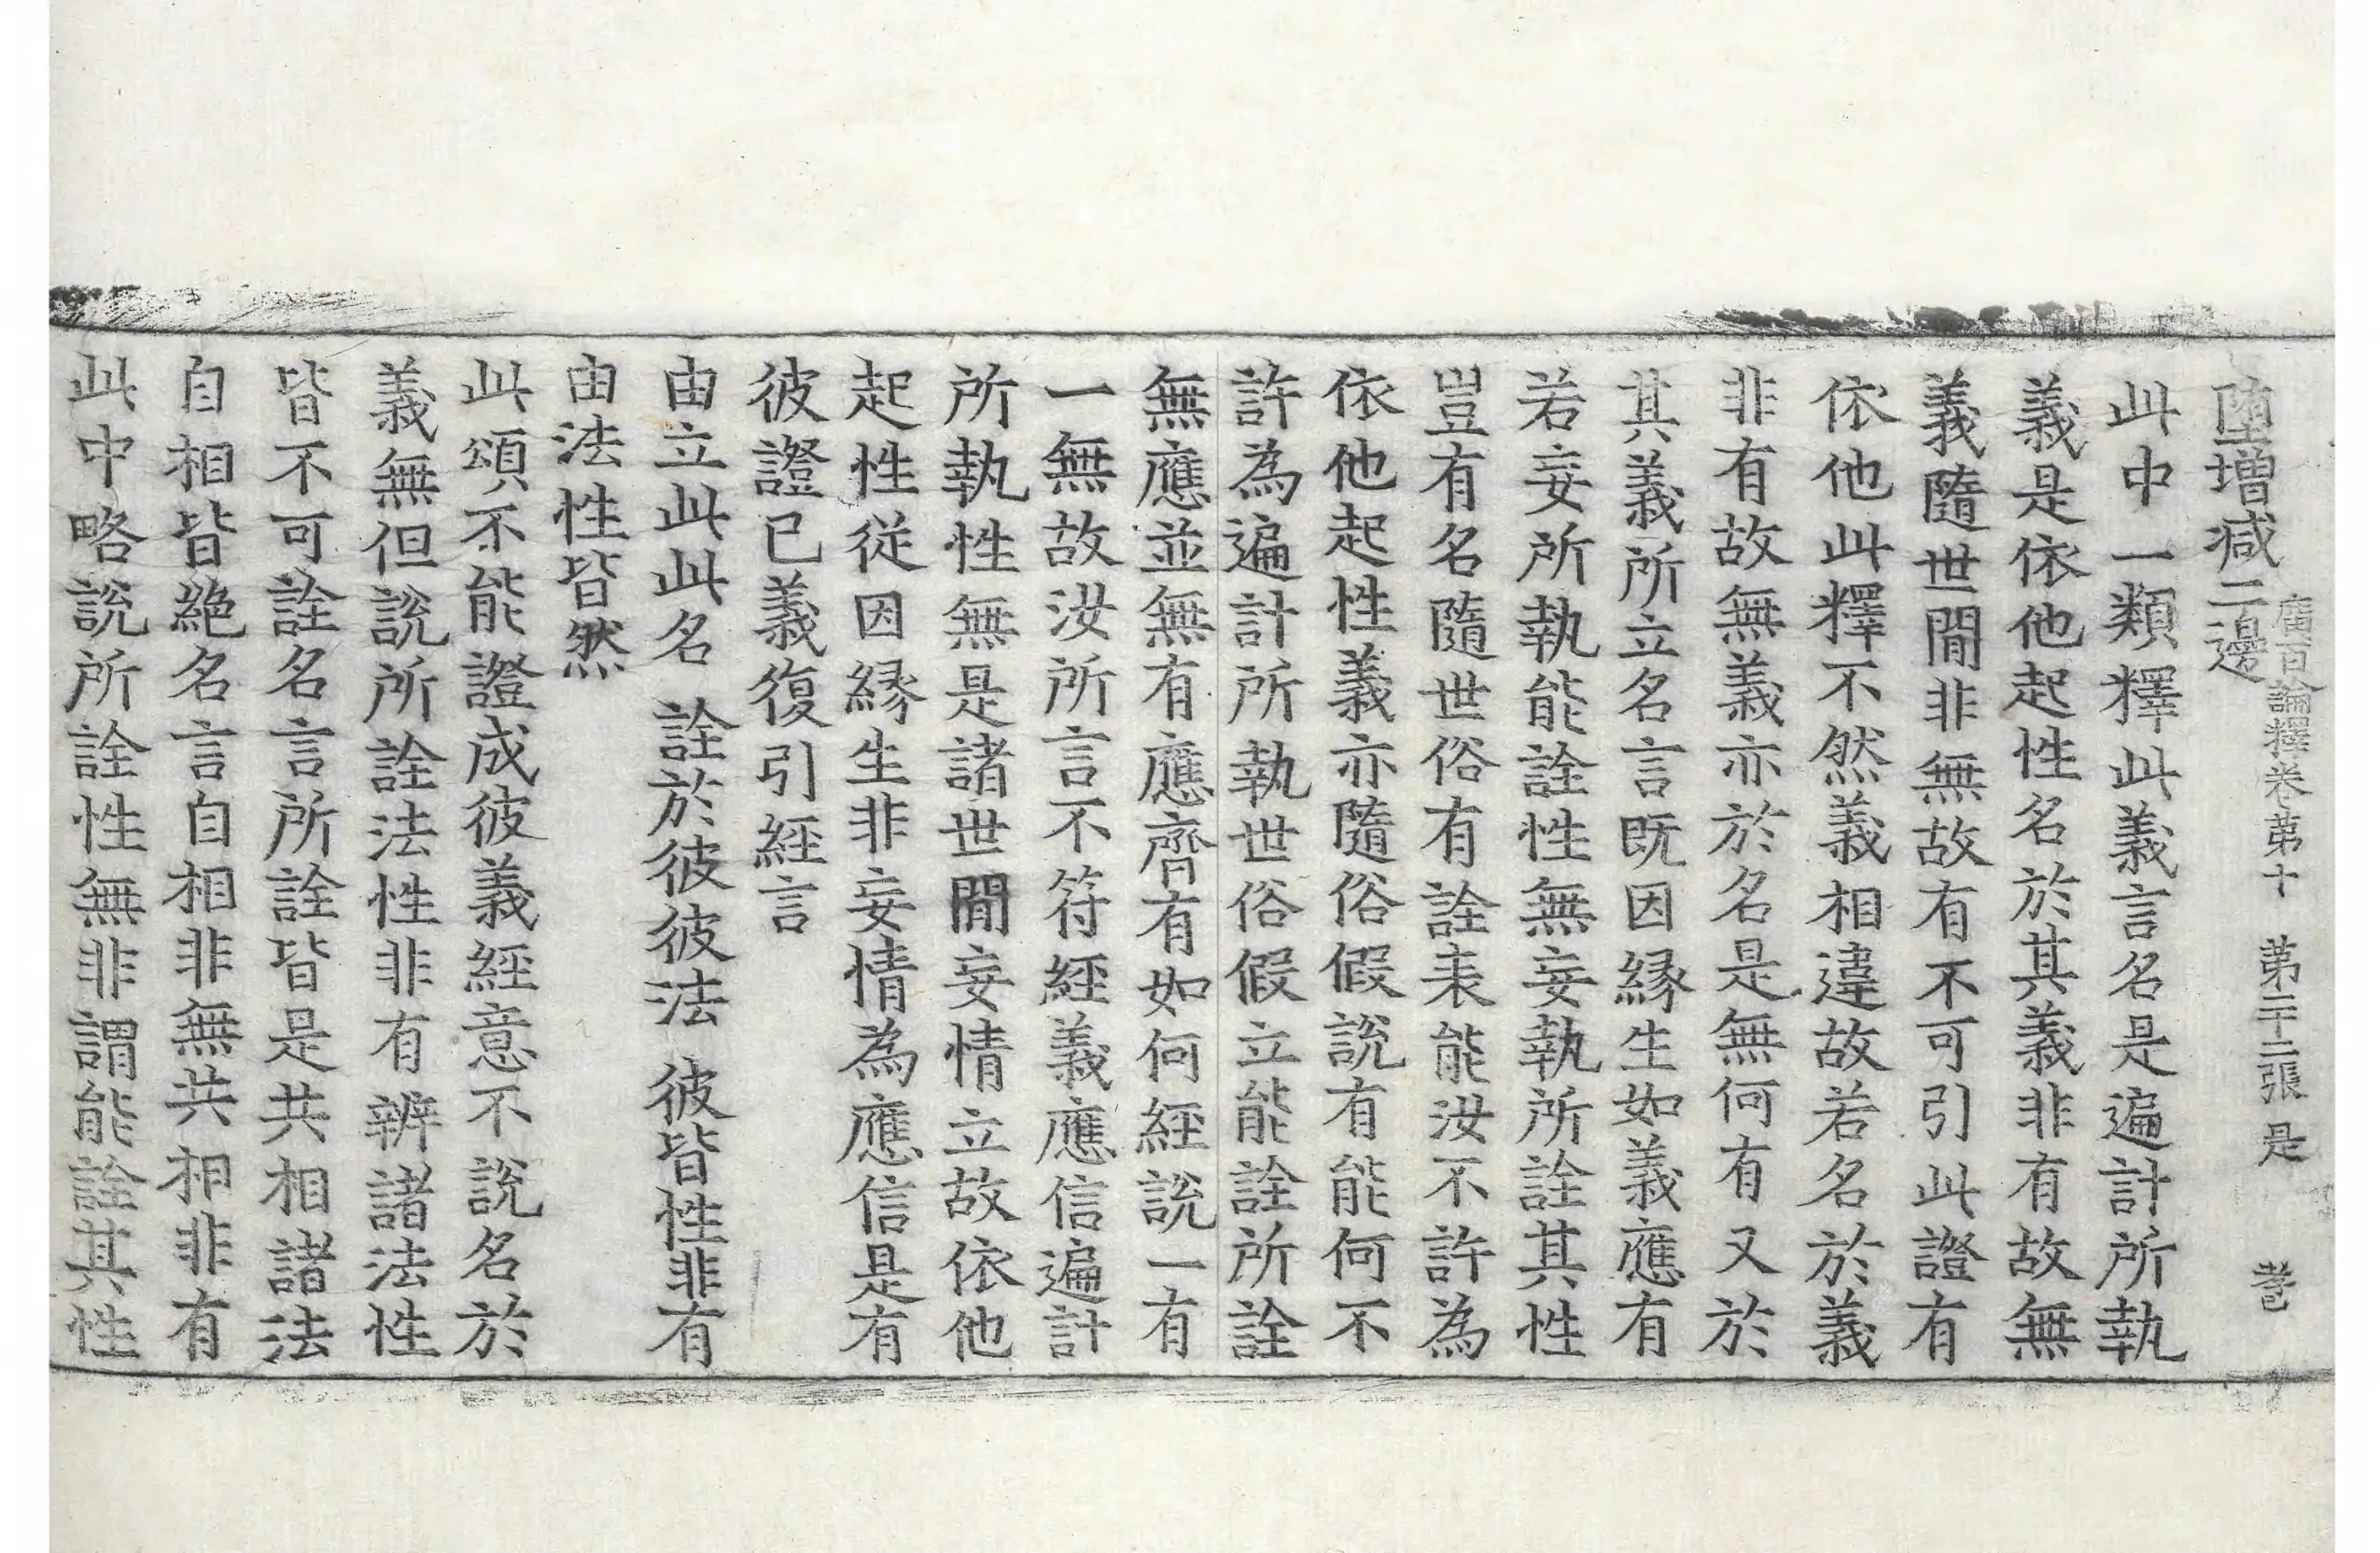 廣百論釋卷第十　第二十二張　是
堕增减二邊
此中一類釋此義言名是遍計所執
義是依他起性名於其義非有故無
義隨世間非無故有不可引此證有
依他此釋不然義相違故若名於義
非有故無義亦於名是無何有又於
其義所立名言既因緣生如義應有
若妄所執能詮性無妄執所詮其性
豈有名隨世俗有詮表能汝不許為
依他起性義亦隨俗假說有能何不
許為遍計所執世俗假立能詮所詮
無應並無有應齊有如何經說一有
一無故汝所言不符經義應信遍計
所執性無是諸世間妄情立故依他
起性從因緣生非妄情為應信是有
彼證已義復引經言
由立此此名　詮於彼彼法　彼皆性非有
由法性皆然
此頌不能證成彼義經意不說名於
義無但說所詮法性非有辨諸法性
皆不可詮名言所詮皆是共相諸法
自相皆絕名言自相非無共相非有
此中略說所詮性無非謂能詮其性